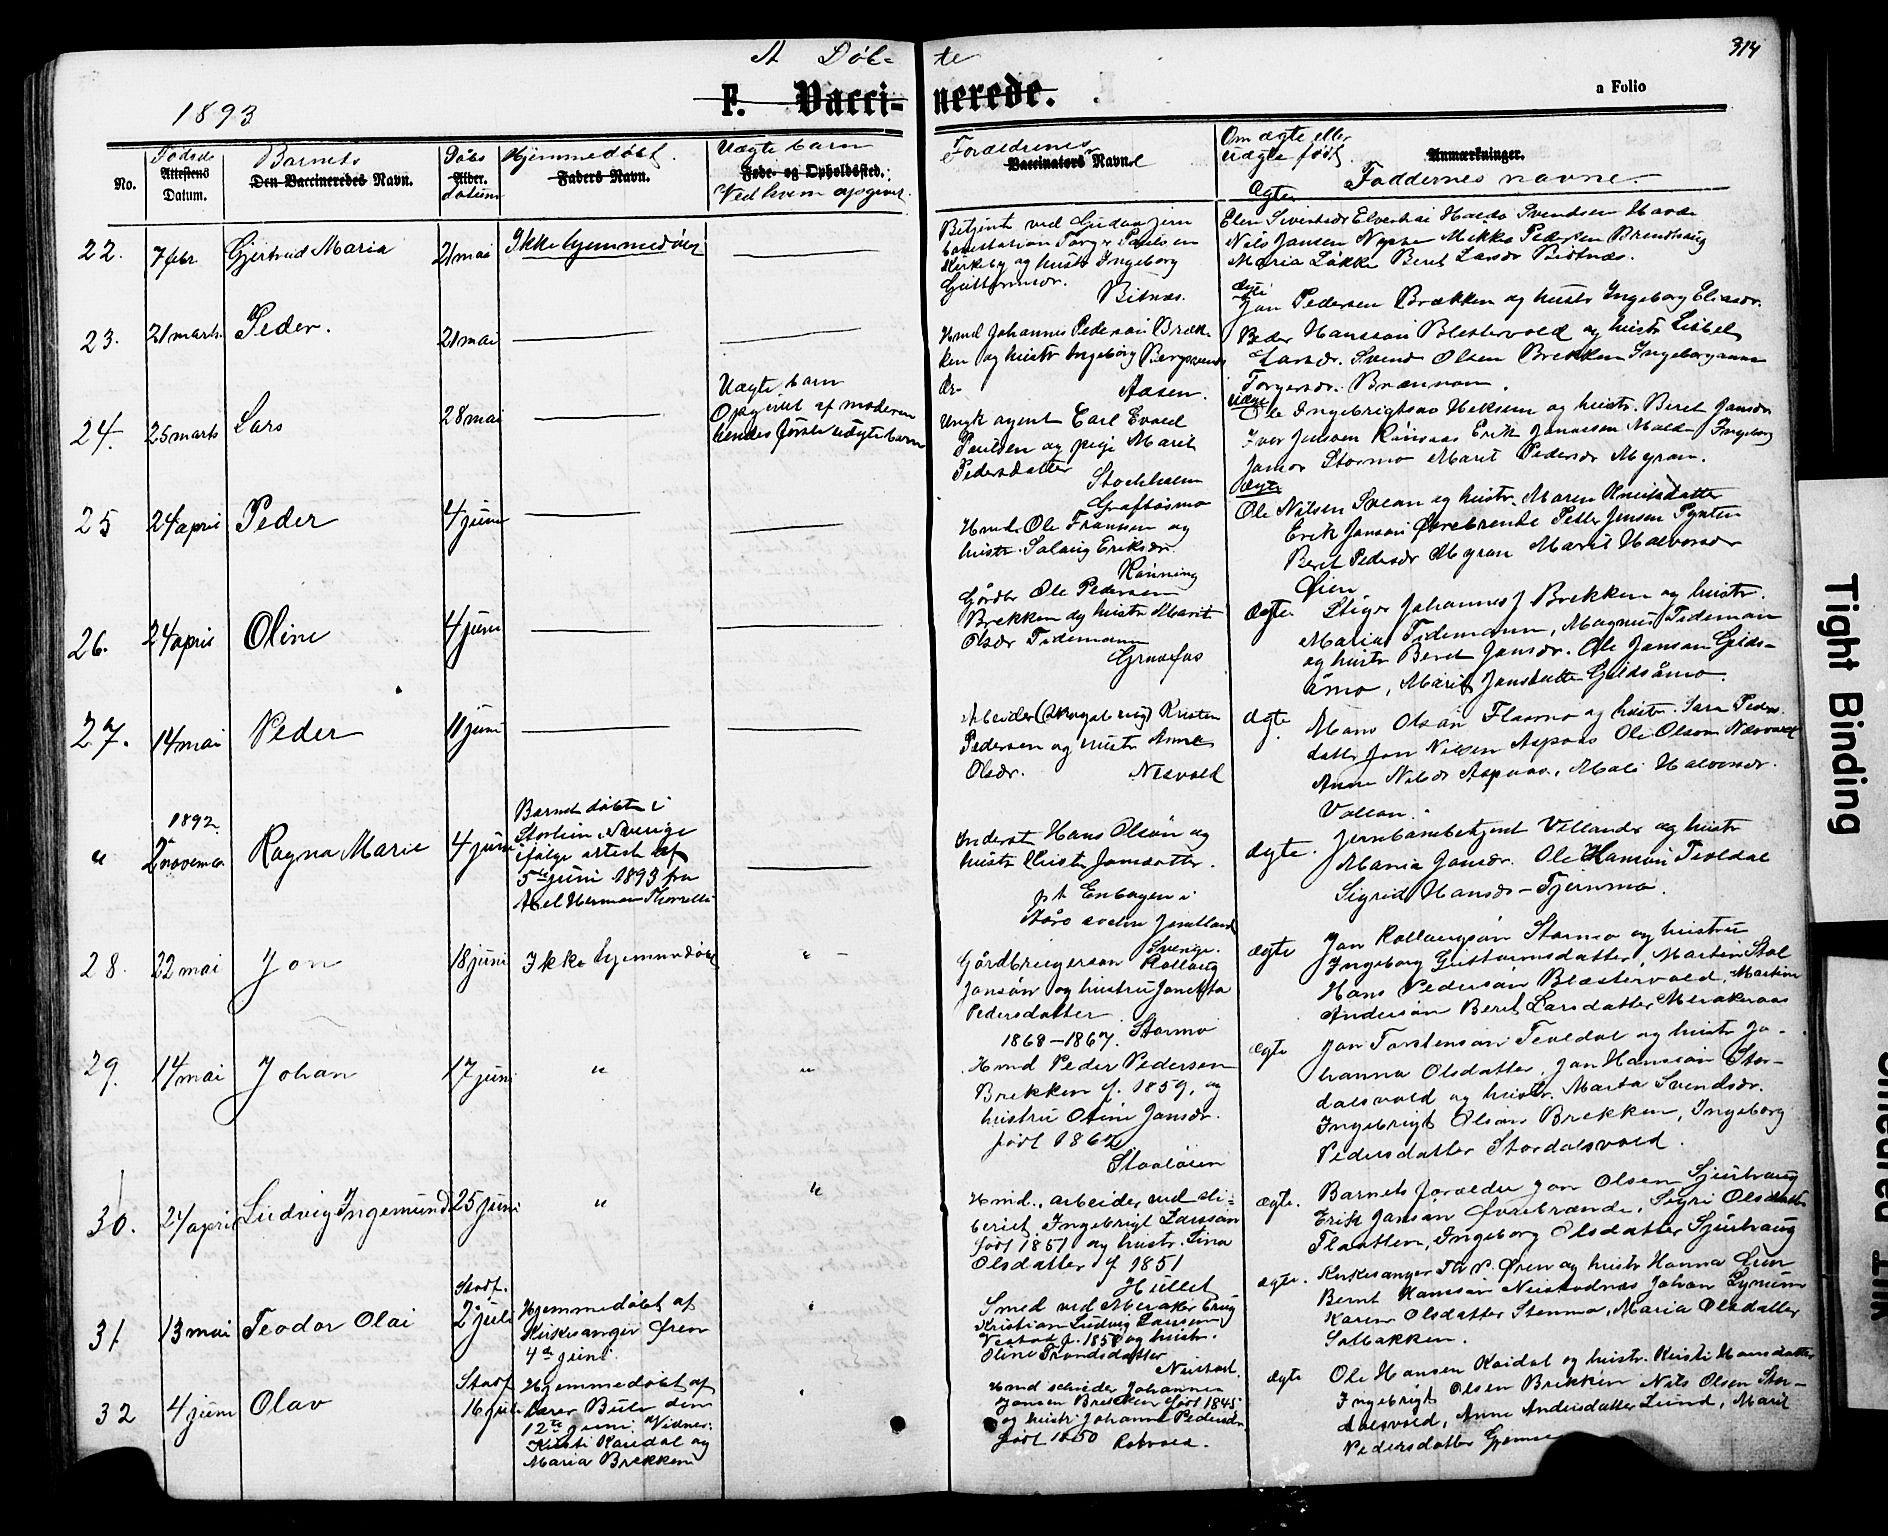 A Døb- te
314
F. Vacci- nerede.
a Folio
1893
No.
Fødsels
Attestens
Datum.
Barnets
Den Vaccineredes Navn.
Dåbs
Alder.
datum
Hjemmedøbt.
Faders Navn.
Uægte barn
Føde- og Opholdssted.
Ved hvem opgivet
Forældrenes
Vaccinators Navn.
Om ægte eller
uægte født.
Anmærkninger.
Faddernes navne.
22.
7 febr
Gjertrud Maria
21 mai
Ikke hjemmedøbt
Betjent ved Gudaa jern
banestation Torger Paulsen
Kirkeby og hustr Ingeborg
Guttormsdr.
Bitnæs.
Ægte
Elen Sivertsdr Elvertrøi Haldo Svendsen
Nils Jansen Mikkel Pedersen Brendhaug
Maria Løkke Beret Larsdr Bitnæs.
23.
21 marts
Peder.
21 mai
Hmd Johannes Pedersen Bræk-
ken og hustr Ingeborg Bergsvends
dr.
Aasen.
ægte
Jon Pedersen Brækken og hustr Ingeborg Eliasdr.
Peder Hansson Blestervold og hustr Lisbet
Larsdr. Svend Olsen Brekken Ingeborganna
Torgersdr.
24.
25 marts
Lars
28 mai
Uægte barn
Opgivet af moderen
hendes første uægte barn
agent Carl Evald
Paulsen og pige Marit
Pedersdatter
Stockholm
uægte
Ole Ingebrigtsen Heksem og hustr. Beret Jansdr
Iver Jansen Rønsaas Erik Jonassen Ingeborg
Jansdr Stormo Marit Pedersdr Myran.
25
24 april
Peder
4 juni
Graftåsmo
Hmd. Ole Frantsen og
hustr. Solvig Eriksdr.
Rønning
ægte
Ole Nilsen Svean og hustr. Maren Knutsdatter
Erik Jansøn Øvrebrende Petter Jensen Pynten
Beret Pedersdr Myran Marit Halvorsdr
Øien
26.
24 april
Oline
4 juni
Gårdbr Ole Pedersen
Brekken og hustr Marit
Olsdr Tidemann
Grudfos
Ægte.
Stiger Johannes J Brekken og hustr.
Maria Tidemann, Magnus Tideman
og hustr Beret Jansdr. Ole Jansen Gilds-
åmo, Marit Jansdatter Gildsåmo.
27.
14 mai
Peder
11 juni
Arbeider Kristen
Pedersen og hustr Anne
Olsdr.
Nesvold
Ægte.
Hans Olsøn Flaamo og hustr. Sara Peders
datter Jon Nilsen Aspaas Ole Olson Næsvold
Anne Nilsdr Aspaas, Mali Halvorsdr.
Vollan.
"
1892
2 november
Ragna Marie
4 juni
Barnet døbt i
Storlien i Sverige
ifølge attest af
5te juni 1893 fra
Axel Herman
Inderst Hans Olsøn og
hustr Christi Jonsdatter.
pt Enbogen i
Jemtland
Sverige.
ægte.
Jernbanebetjent Villandr og hustr
Maria Jonsdr. Ole Hansøn Teveldal
Sigrid Hansdr - Tjernmo.
28.
22 mai
Jon
18 juni
Ikke hjemmedøbt
" -
Gårdbrugersøn Kolbeng
Jonsøn og hustru Jonetta
Pedersdatter.
1868 - 1867. Stormo
ægte
Jon Kolbengsøn Stormo og hustru
Ingeborg Guttormsdatter, Martin Stol
Hans Pedersøn Blæstervold, Martin
Andersøn Beret Larsdatter Merakeraas
29.
14 mai
Johan
17 juni
"
"
Hmd Peder Pedersen
Brekken f. 1859, og
hustru Oline Jonsdr.
født 1862
Staaløsen
ægte
Jon Torstensøn Teveldal og hustr Jo-
hanna Olsdatter, Jon Hanssøn Stor-
dalsvold og hustr. Marta Svendsdr.
Ingebrigt Olsøn Brekken, Ingeborg
Pedersdatter Stordalsvold.
30.
24 april
Ludvig Ingemund
25 juni
"
"
Hmd., arbeider ved sli-
beriet, Ingebrigt Larssøn
født 1851 og hustr. Lina
Olsdatter f 1851
Hullet
ægte.
Barnets forældre Jon Olsen Sjurhaug
Erik Jansøn Øvrebrænde, Sigri Olsdatter
Flaatten, Ingeborg Olsdatter Sjurhaug
31
13 mai
Teodor Olai
Stadf.
2 juli
Hjemmedøbt af
Kirkesanger Øren
4de juni
Smed ved Meraker brug
Kristian Ludvig Larsen
f. 1858 og hustr.
Oline Trondsdatter
Neistad.
ægte.
Kirkesanger Øren og hustr Hanna Øren
Bernt Hanssøn Neustadnæs Johan
Karen Olsdatter Stenmo, Maria Olsdatter
Solbakken.
32
4 juni
Olav
Stadf
16 juli
Hjemmedøbt af
lærer Bule den
12te juni. Vidner:
Kirsti Kaidal og
Maria Brekken
Hmd Johannes
Jonsen Brekken født 1845
og hustr. Johanna Pedersdr
født 1850
ægte
Ole Hansen Kaidal og hustr. Kirsti Hansdatter
Ingebrigt Olsen Brekken Nils Olsen Stor-
dalsvold, Anne Andersdatter Lund, Marit
Pedersdatter
Tight Binding